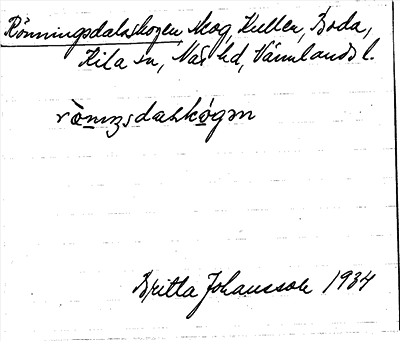 Rönningsdalsskogen skog, Kullen, Boda,
Kila sn, Näs hd, Värmlands l.
Britta Johansson 1934